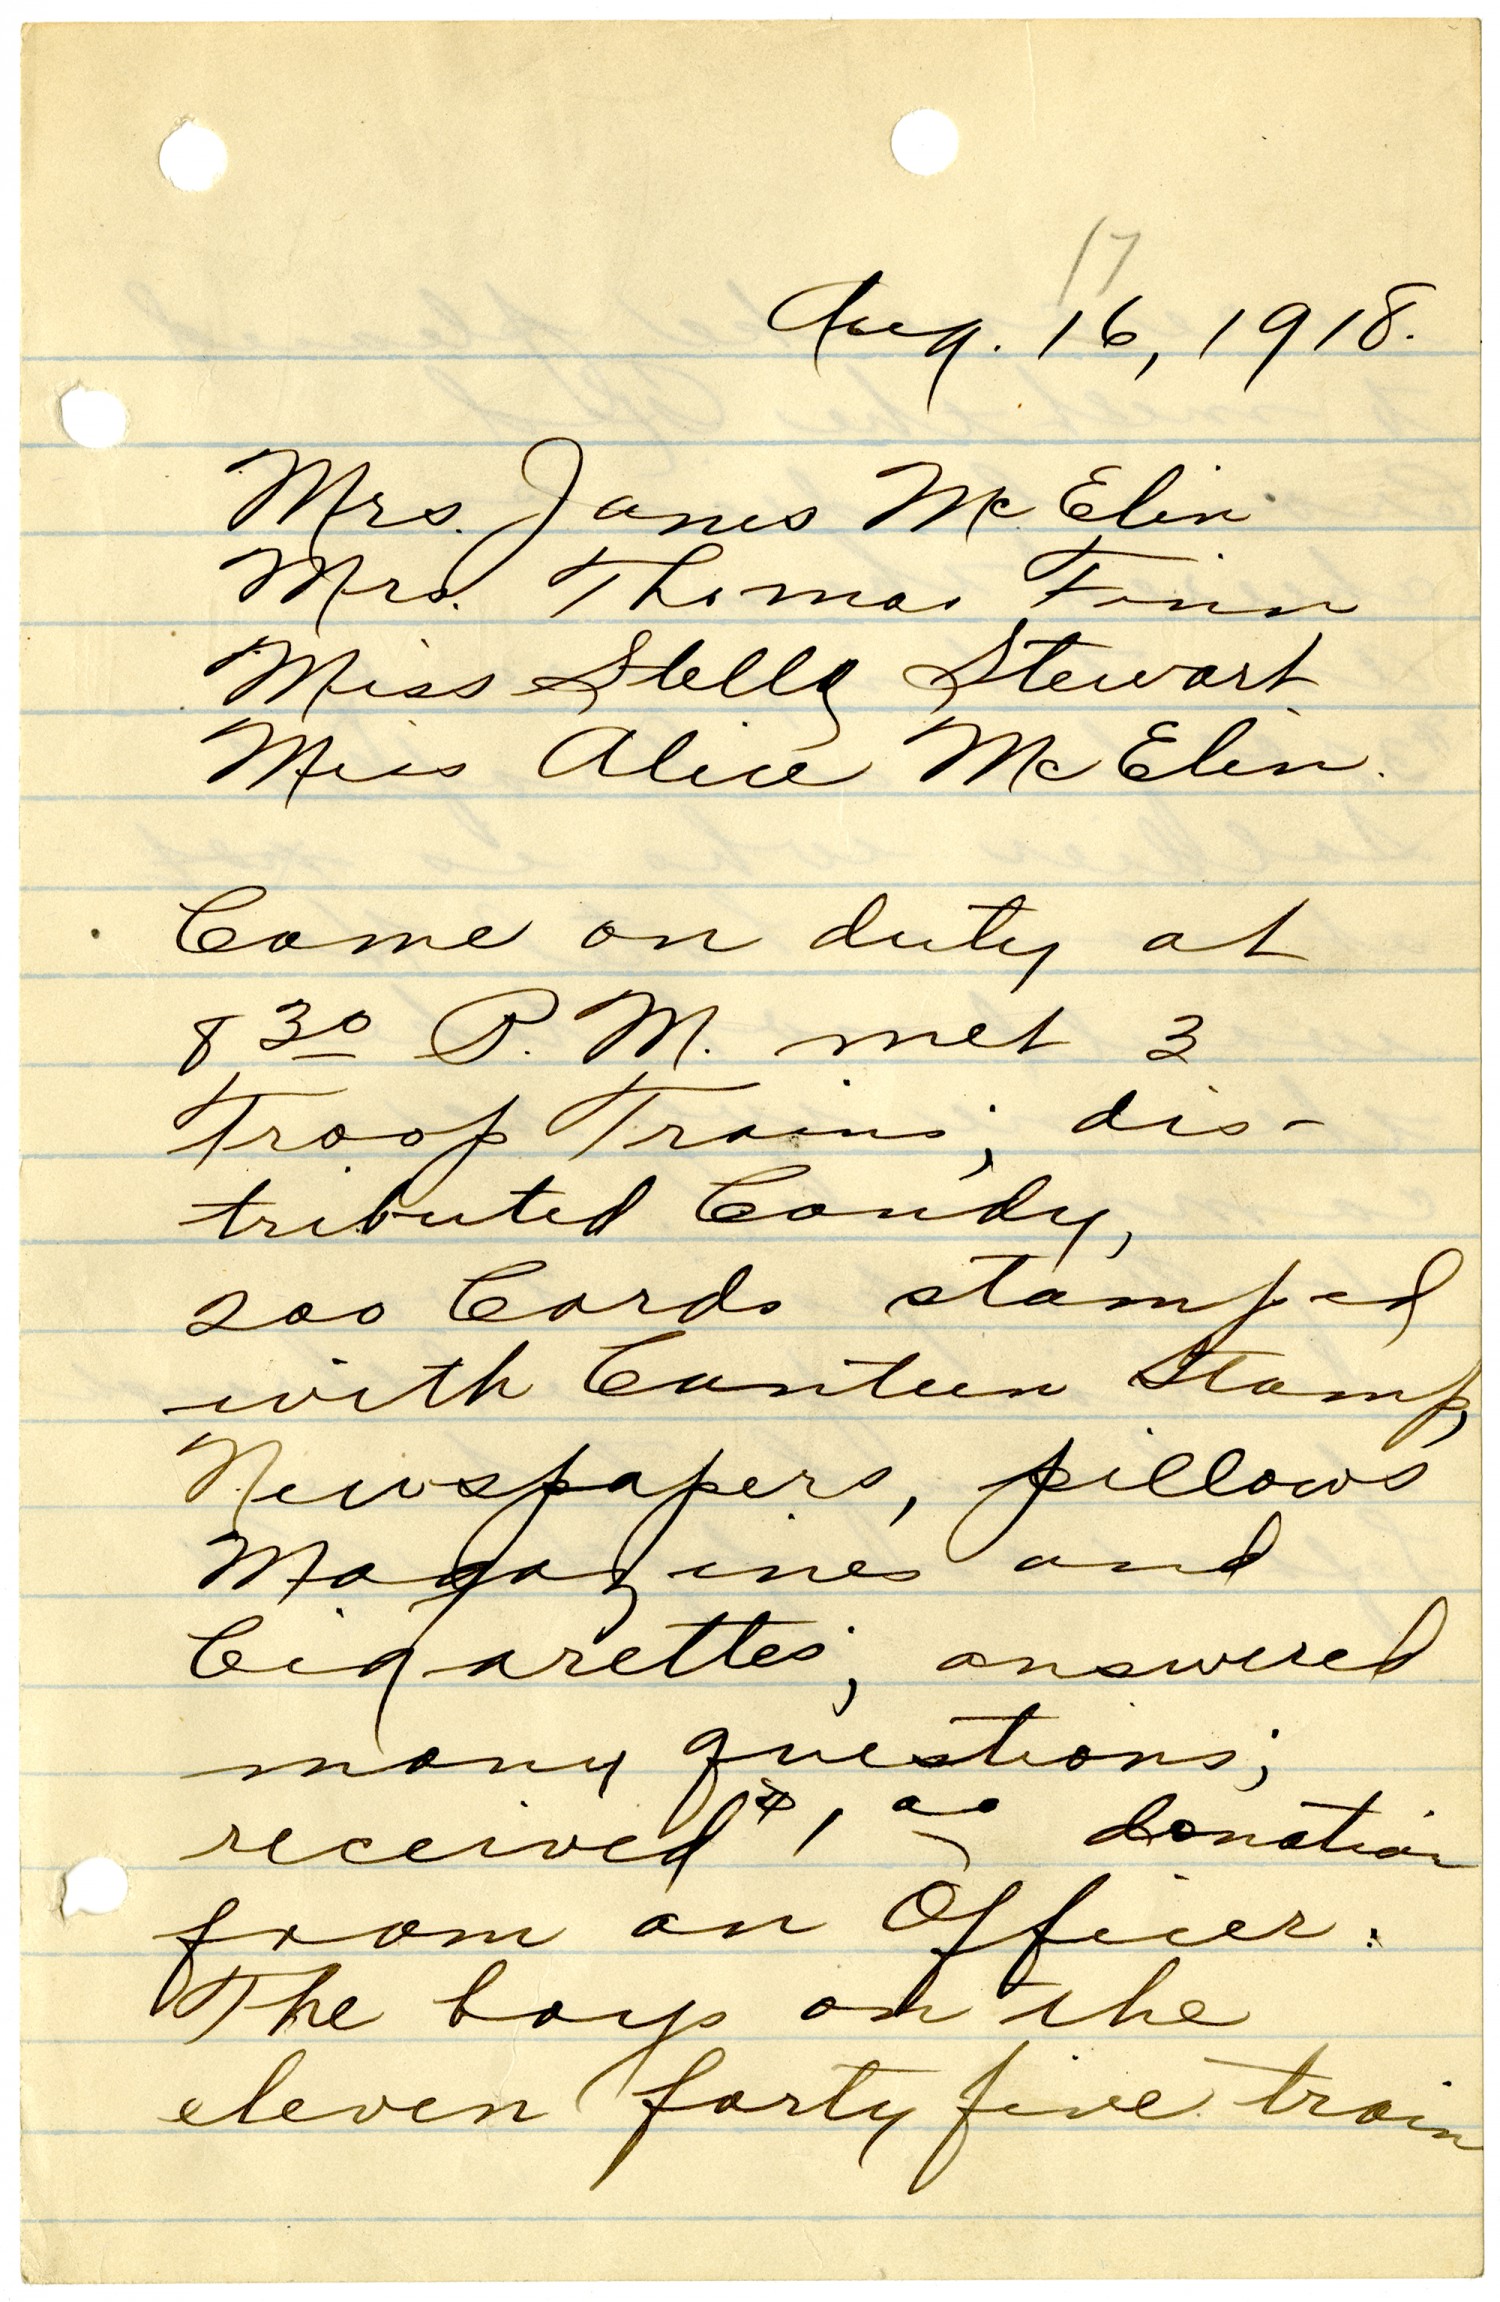 17
Aug. 16, 1918.
Mrs. James McElin
Mrs. Thomas Finn
Miss Stella Stewart
Miss Alice McElin.
Came on duty at
8 30 P.M. met 3
Troop Trains; dis-
tributed Candy,
200 Cards stamped
with Canteen Stamp,
Newspapers, pillows
Magazines and
Cigarettes; answered
many questions;
received $1.00 donation
from an Officer.
The boys on the
eleven forty five train